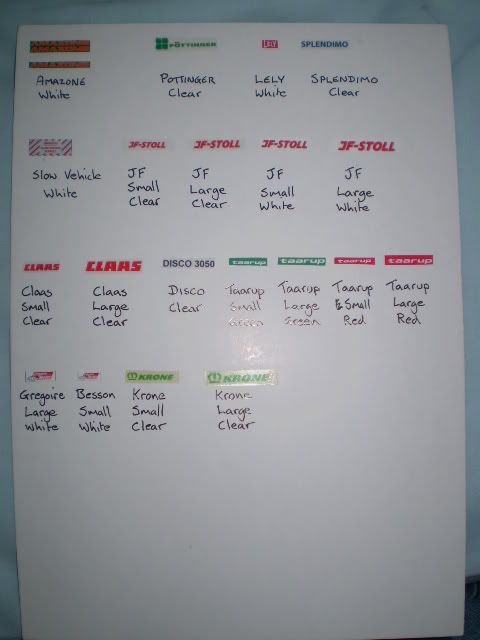 AMAZONE
PÖTTINGER LELY SPLENDIMO
AMAZONE POTTINGER LELY SPLENDIMO
White Clear White Clear
JF-STOLL JF-STOLL JF-STOLL JF-STOLL
Slow Vehicle JF JF JF JF
White Small Large Small Large
Clear Clear White White
CLAAS CLAAS DISCO 3050 taarup taarup taarup taarup
Claas Claas DISCO Taarup Taarup Taarup Taarup
Small Large Clear Small Large Small Large
Clear Clear Green Green Red Red
KRONE KRONE
Gregoire Besson Krone Krone
Large Small Small Large
White White Clear Clear